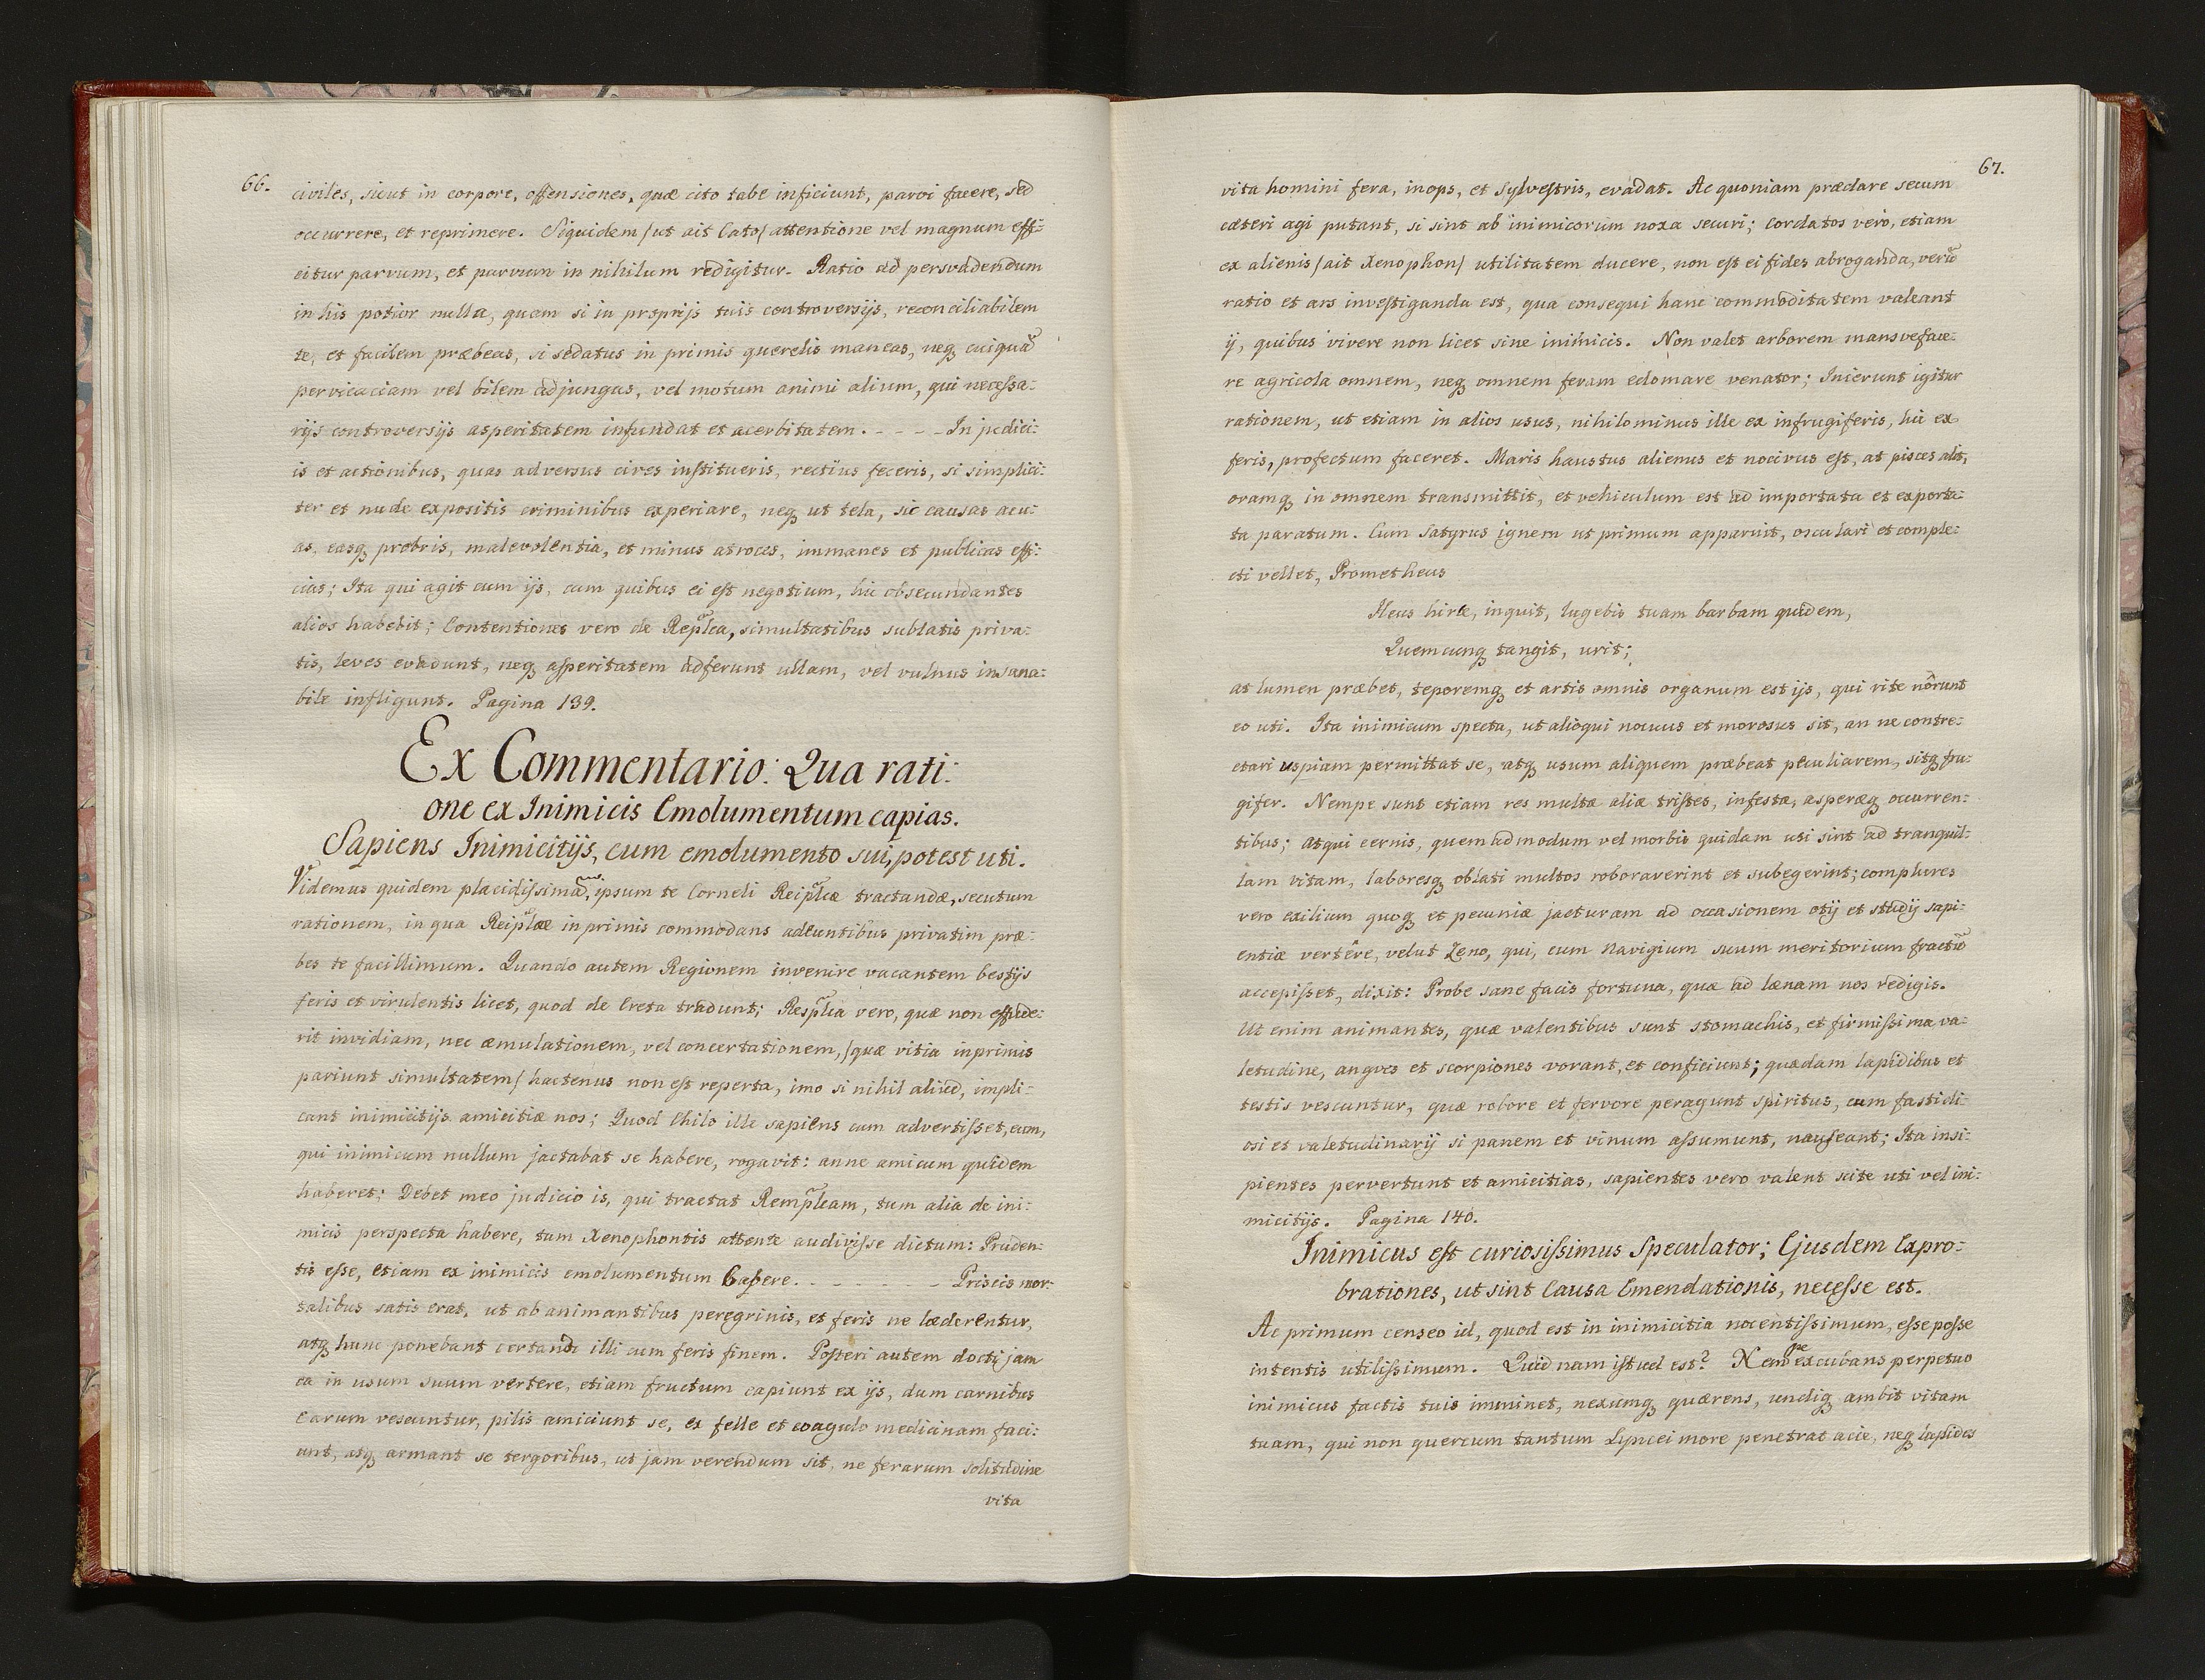 66.
civiles, sicut in corpore, offensiones, quæ cito tabe inficiunt, parvi facere, sed
occurrere, et reprimere. Siquidem /ut ait Cato/ attentione vel magnum effi-
citur parvum, et parvum in nihilum redigitur. Ratio ad persvadendum
in his potior nulla, quam si in proprijs tuis controversijs, reconciliabilem
te, et facilem præbeas, si sedatus in primis querelis maneas, neq, cuiquã
pervicaciam vel bilem adjungas, vel motum animi alium, qui necessa-
rijs controversijs asperitatem infundat et acerbitatem. - - - - In judici-
is et actionibus, quas adversus cives institueris, rectius feceris, si simplici-
ter et nude expositis criminibus experiare, neq, ut tela, sic causas acu-
as, easq, probris, malevolentia, et minus atroces, immanes et publicas effi-
cias; Ita qui agit cum ijs, cum quibus ei est negotium, hic obsecundantes
alios habebit; Contentiones vero de Repl̃ca, simultatibus sublatis priva-
tis, leves evadunt, neq, asperitatem adferunt ullam, vel vulnus insana-
bile infligunt. Pagina 139.
Ex Commentario: Qua rati-
one ex Inimicis Emolumentum capias.
Sapiens Inimicitijs, cum emolumento sui, potest uti.
Videmus quidem placidissimam, ipsum te Corneli Reipl̃cæ tractandæ, secutum
rationem, in qua Reipl̃cæ inprimis commodans adeuntibus privatim præ-
bes te facillimum. Quando autem Regionem invenire vacantem bestijs
feris et virulentis licet, quod de Creta tradunt; Respl̃ca vero, quæ non effude-
rit invidiam, nec æmulationem, vel concertationem, /quæ vitia inprimis
pariunt simultatem/ hactenus non est reperta, imo si nihil aliud, impli-
cant inimicitijs amicitiæ nos; Quod Chilo ille sapiens cum advertisset, eum,
qui inimicum nullum jactabat se habere, rogavit: anne amicum quidem
haberet; Debet meo judicio is, qui tractat Rempl̃cam, tum alia de ini-
micis perspecta habere, tum Xenophontis attente audivisse dictum: Pruden-
tis esse, etiam ex inimicis emolumentum Capere. - - - - - - Priscis mor-
talibus satis erat, ut ab animantibus peregrinis, et feris ne læderentur,
atq, hunc ponebant certandi illi cum feris finem. Posteri autem docti jam
ea in usum suum vertere, etiam fructum capiunt ex ijs, dum carnibus
earum vescuntur, pilis amiciunt se, ex felle et coagulo medicinam faci-
unt, atq, armant se tergoribus, ut jam verendum sit, ne ferarum solitudine
vita
67.
vita homini fera, inops, et sylvestris, evadat. Ac quoniam præclare secum
cæteri agi putant, si sint ab inimicorum noxa securi; Cordatos vero, etiam
ex alienis /ait Xenophon/ utilitatem ducere, non est ei fides abroganda, verũ
ratio et ars investiganda est, qua consequi hanc commoditatem valeant
ij, quibus vivere non licet sine inimicis. Non valet arborem mansveface-
re agricola omnem, neq, omnem feram edomare venator; Inierunt igitur
rationem, ut etiam in alios usus, nihilominus ille ex infrugiferis, hic ex
feris, profectum faceret. Maris haustus alienus et nocivus est, at pisces alit,
oramq, in omnem transmittit, et vehiculum est ad importata et exporta-
ta paratum. Cum Satyrus ignem ut primum apparuit, osculari et comple-
cti vellet, Prometheus
Heus hirce, inquit, lugebis tuam barbam quidem,
Quemcunq, tangit, urit;
at lumen præbet, teporemq, et artis omnis organum est ijs, qui rite nôrunt
eo uti. Ita inimicum specta, ut alioqui nocuus et morosus sit, an ne contre-
ctari uspiam permittat se, atq, usum aliquem præbeat peculiarem, sitq, fru-
gifer. Nempe sunt etiam res multæ aliæ tristes, infestæ, asperæq, occurren-
tibus; atqui cernis, quemadmodum vel morbis quidam usi sint ad tranquil-
lam vitam, laboresq, oblati multos roboraverint et subegerint; complures
vero exilium quoq, et pecuniæ jacturam ad occasionem otij et studij sapi-
entiæ vertêre, velut Zeno, qui, cum Navigium suum meritorium fractũ
accepisset, dixit: Probe sane facis fortuna, quæ ad lænam nos redigis.
Ut enim animantes, quæ valentibus sunt stomachis, et firmissima va-
letudine, angves et scorpiones vorant, et conficiunt; quædam lapidibus et
testis vescuntur, quæ robore et fervore peragunt spiritus, cum fastidi-
osi et valetudinarij si panem et vinum assumunt, nauseant; Ita insi-
pientes pervertunt et amicitias, sapientes vero valent scite uti vel ini-
micitijs. Pagina 140.
Inimicus est curiosissimus Speculator; Ejusdem Expro-
brationes, ut sint Causa Emendationis, necesse est.
Ac primum censeo id, quod est in inimicitia nocentissimum, esse posse
intentis utilissimum. Quid nam istud est? Nempe excubans perpetuo
inimicus factis tuis imminet, nexumq, quærens, undiq, ambit vitam
tuam, qui non quercum tantum Lyncei more penetrat acie, neq, lapides